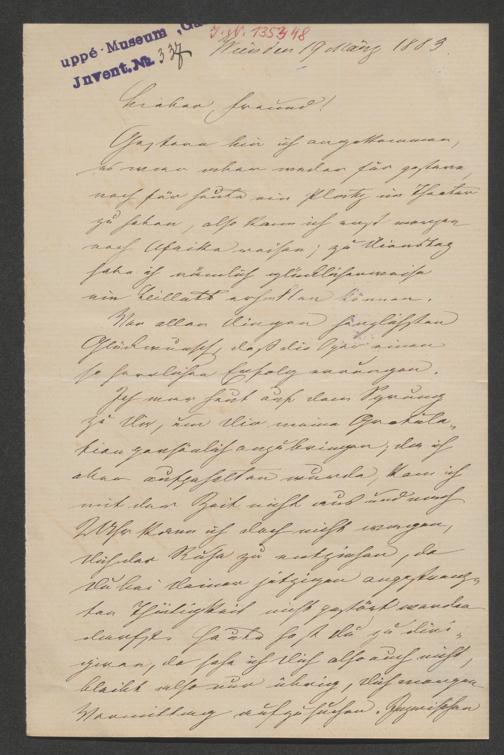 uppé-Museum „Ga
J.N. 135348
Invent.Nr. 337
Wien den 19 März 1883.
Lieber Freund!
Gestern bin ich angekommen,
es war aber weder für gestern,
noch für heute ein Platz im Theater
zu haben, also kann ich erst morgen
nach Afrika reisen; zu Dienstag
habe ich nämlich glücklicherweise
ein Billett erhalten können.
Vor allen Dingen herzlichsten
Glückwunsch, daß die Oper einen
so herrlichen Erfolg errungen.
Ich war heut auf dem Sprung
zu Dir, um Dir meine Gratula-
tion persönlich anzubringen; da ich
aber aufgehalten wurde, kam ich
mit der Zeit nicht aus und nach
2 Uhr kann ich doch nicht wagen,
Dich der Ruhe zu entziehen, da
Du bei Deiner jetzigen angestreng-
ten Thätigkeit nicht gestört werden
darfst. Heute hast Du zu diri-
giren, da sehe ich Dich also auch nicht,
bleibt also nur übrig, Dich morgen
Vormittag aufzusuchen. Inzwischen